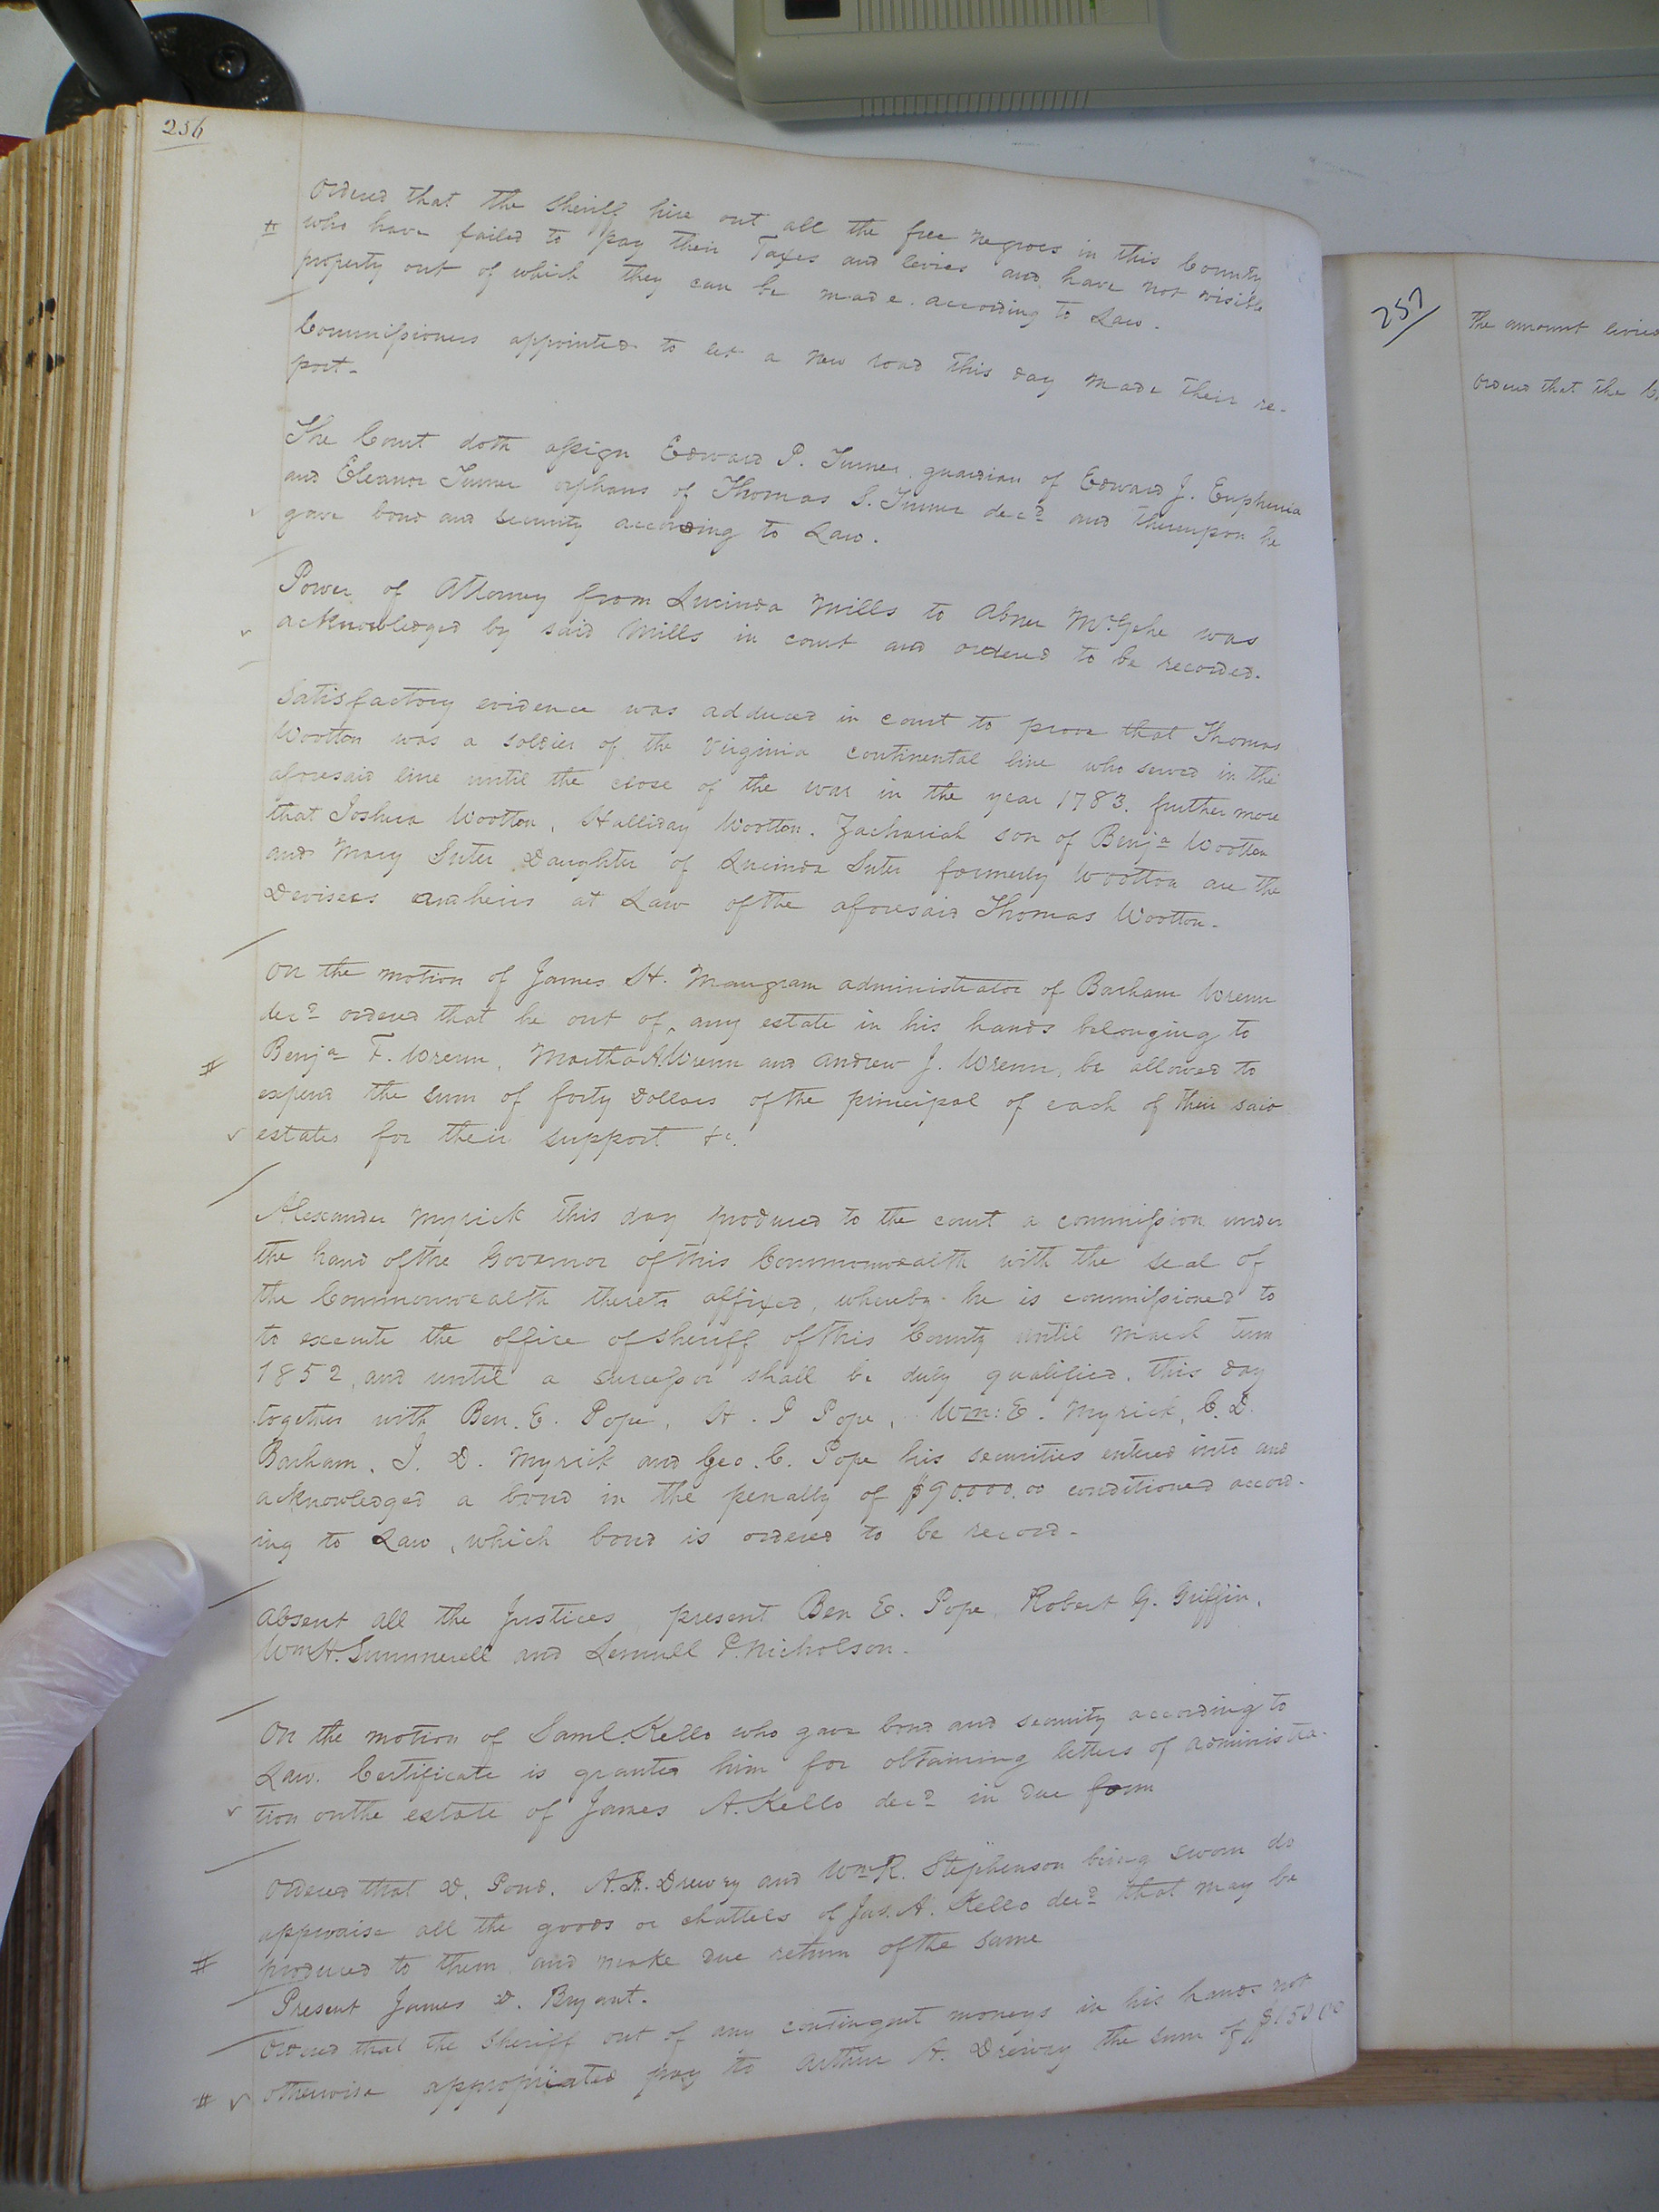 256
Ordered that the Sheriff hire out all the free negroes in this County
# who have failed to pay their Taxes and levies and have not visible
property out of which they can be made according to Law.
Commissioners appointed to let a new road this day made their re-
port.
The Court doth assign Edward P. Turner guardian of Edward J. Euphenia
and Eleanor Turner orphans of Thomas S. Turner decd and thereupon he
gave bond and security according to Law.
Power of Attorney from Lucinda Mills to Abner McGehe was
acknowledged by said Mills in court and ordered to be recorded.
Satisfactory evidence was adduced in court to prove that Thomas
Wootton was a soldier of the Virginia continental line who served in the
aforesaid line until the close of the war in the year 1783. further more
that Joshua Wootton, Halliday Wootton. Zachariah son of Benja Wootton
and Mary Suter Daughter of Lucinda Suter formerly Wootton are the
Devisees and heirs at Law of the aforesaid Thomas Wootton.
On the motion of James H. Mangram administrator of Barham Wrenn
decd ordered that he out of any estate in his hands belonging to
# Benja F. Wrenn, Martha A. Wrenn and Andrew J. Wrenn, be allowed to
expend the sum of forty Dollars of the principal of each of their said
estates for their support &c.
Alexander Myrick this day produced to the court a commission under
the hand of the Governor of this Commonwealth with the seal of
the Commonwealth thereto affixed, whereby he is commissioned to
to execute the office of Sheriff of this County until March term
1852, and until a successor shall be duly qualified. this day
together with Ben. E. Pope, H. P Pope, Wm: E. Myrick, C. D.
Barham, J. D. Myrick and Geo. C. Pope his securities entered into and
acknowledged a bond in the penalty of $90.000.00 conditioned accord-
ing to Law, which bond is ordered to be record-
Absent all the Justices present Ben E. Pope, Robert G. Griffin,
Wm H. Summerell and Lemuell P. Nicholson.
On the motion of Saml. Kello who gave bond and security according to
Law. Certificate is granted him for obtaining letters of administra-
tion on the estate of James A. Kello decd in due form
Ordered that D. Pond, A. R. Drewry and Wm R. Stephenson being sworn do
appraise all the goods or chattels of Jas. A. Kello decd that may be
# produced to them and make due return of the same
Present James D. Bryant.
Ordered that the Sheriff out of any contingent moneys in his hands not
# otherwise appropriated pay to Arthur A. Drewry the sum of $150 00
257
The amount levied
Ordered that the